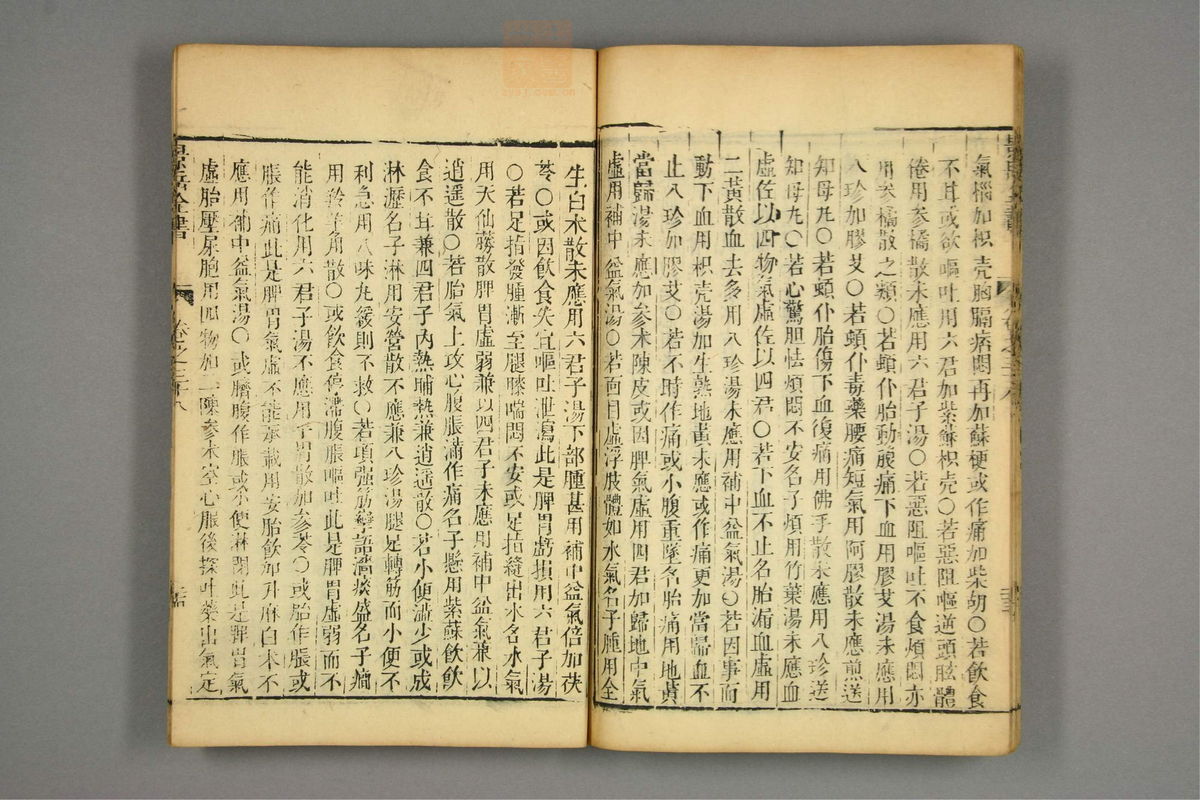 氣惱加枳壳胸膈痞悶再加蘇梗或作痛加柴胡〇若飲食
不甘或欲嘔吐用六君加紫蘇枳壳〇若惡阻嘔逆頭眩體
倦用參橘散未應用六君子湯〇若惡阻嘔吐不食煩悶亦
用參橘散之類〇若頓仆胎動腹痛下血用膠艾湯未應用
八珍加膠艾〇若頓仆毒藥腰痛短氣用阿膠散未應煎送
知母丸〇若頓仆胎傷下血復痛用佛手散未應用八珍送
知母丸〇若心驚胆怯煩悶不安名子煩用竹葉湯未應血
虛佐以四物氣虛佐以四君〇若下血不止名胎漏血虛用
二黃散血去多用八珍湯未應用補中益氣湯〇若因事而
動下血用枳壳湯加生熟地黃未應或作痛更加當歸血不
止八珍加膠艾〇若不時作痛或小腹重墜名胎痛用地黃
當歸湯未應加參术陳皮或因脾氣虛用四君加歸地中氣
虛用補中益氣湯〇若面目虛浮肢體如水氣名子腫用全
生白术散未應用六君子湯下部腫甚用補中益氣倍加茯
苓〇或因飲食失宜嘔吐泄瀉此是脾胃虧損用六君子湯
〇若足指發腫漸至腿膝喘悶不安或足指縫出水名水氣
用天仙藤散脾胃虛弱兼以四君子未應用補中益氣兼以
逍遥散〇若胎氣上攻心腹脹滿作痛名子懸用紫蘇飲飲
食不甘兼四君子內熱晡熱兼逍遥散〇若小便澁少或成
淋瀝名子淋用安營散不應兼八珍湯腿足轉筋而小便不
利急用八味丸緩則不救〇若項强筋攣語澁痰盛名子癎
用羚羊角散〇或飲食停滯腹脹嘔吐此是脾胃虛弱而不
能消化用六君子湯不應用平胃散加參苓〇或胎作脹或
脹作痛此是脾胃氣虛不能承載用安胎飲加升麻白术不
應用補中益氣湯〇或臍腹作脹或小便淋閉此是脾胃氣
虛胎壓尿胞用四物加二陳參术空心服後探吐藥出氣定
景岳全書
卷之三十八